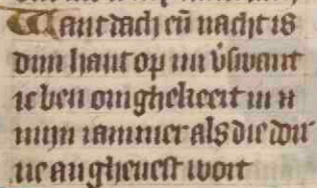 Want dach eñ nacht is
dijn hant op mi v̄swaert
ic ben omghekeert in
mijn iammer als die doir
ne an ghevest wort